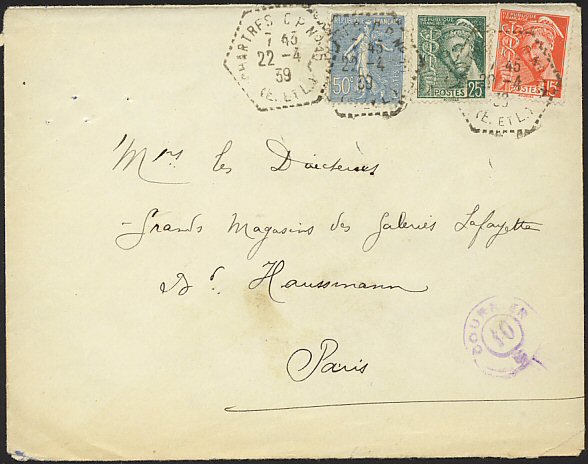 CHARTRES C.P. N°
7 45
22 - 4
39
(E. ET L.)
RÉPUBLIQUE FRANÇAISE
50c
POSTES
RÉPUBLIQUE FRANÇAISE
POSTES 25
RÉPUBLIQUE FRANÇAISE
POSTES 15
7 45
22 - 4
39
(E. ET L.)
Mrs les Directeurs
- Grands Magasins des Galeries Lafayette
Bd Haussmann
Paris
COURRIER
10